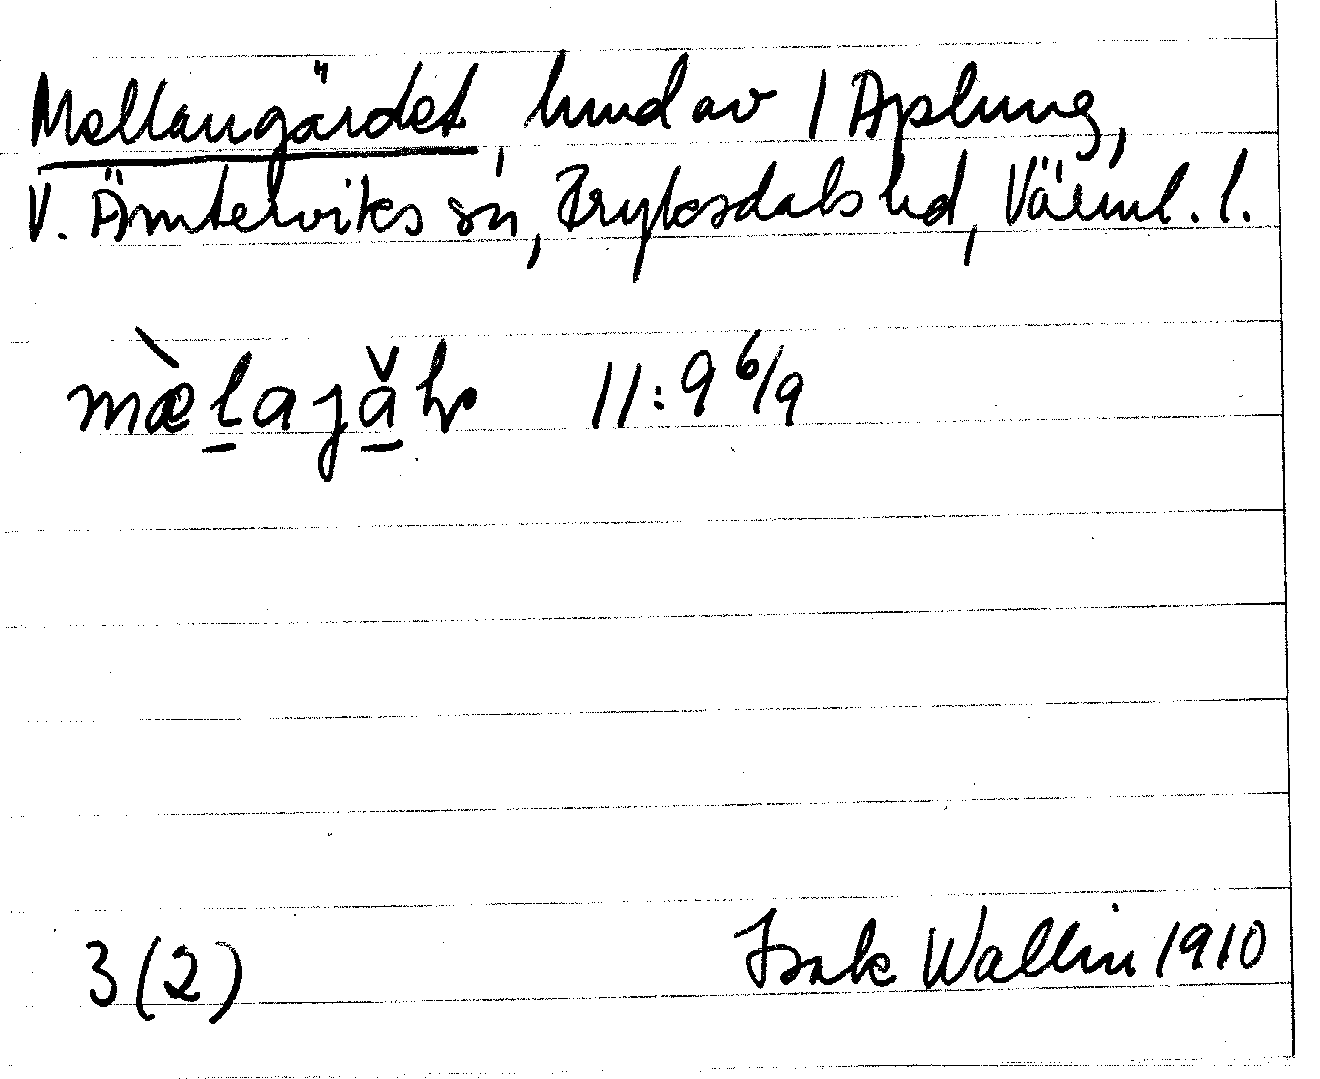 Mellangärdet, hmd av 1 Aplung,
V. Ämterviks sn, Fryksdals hd, Värml. l.
11:9 6/9
3(2) Isak Wallin 1910